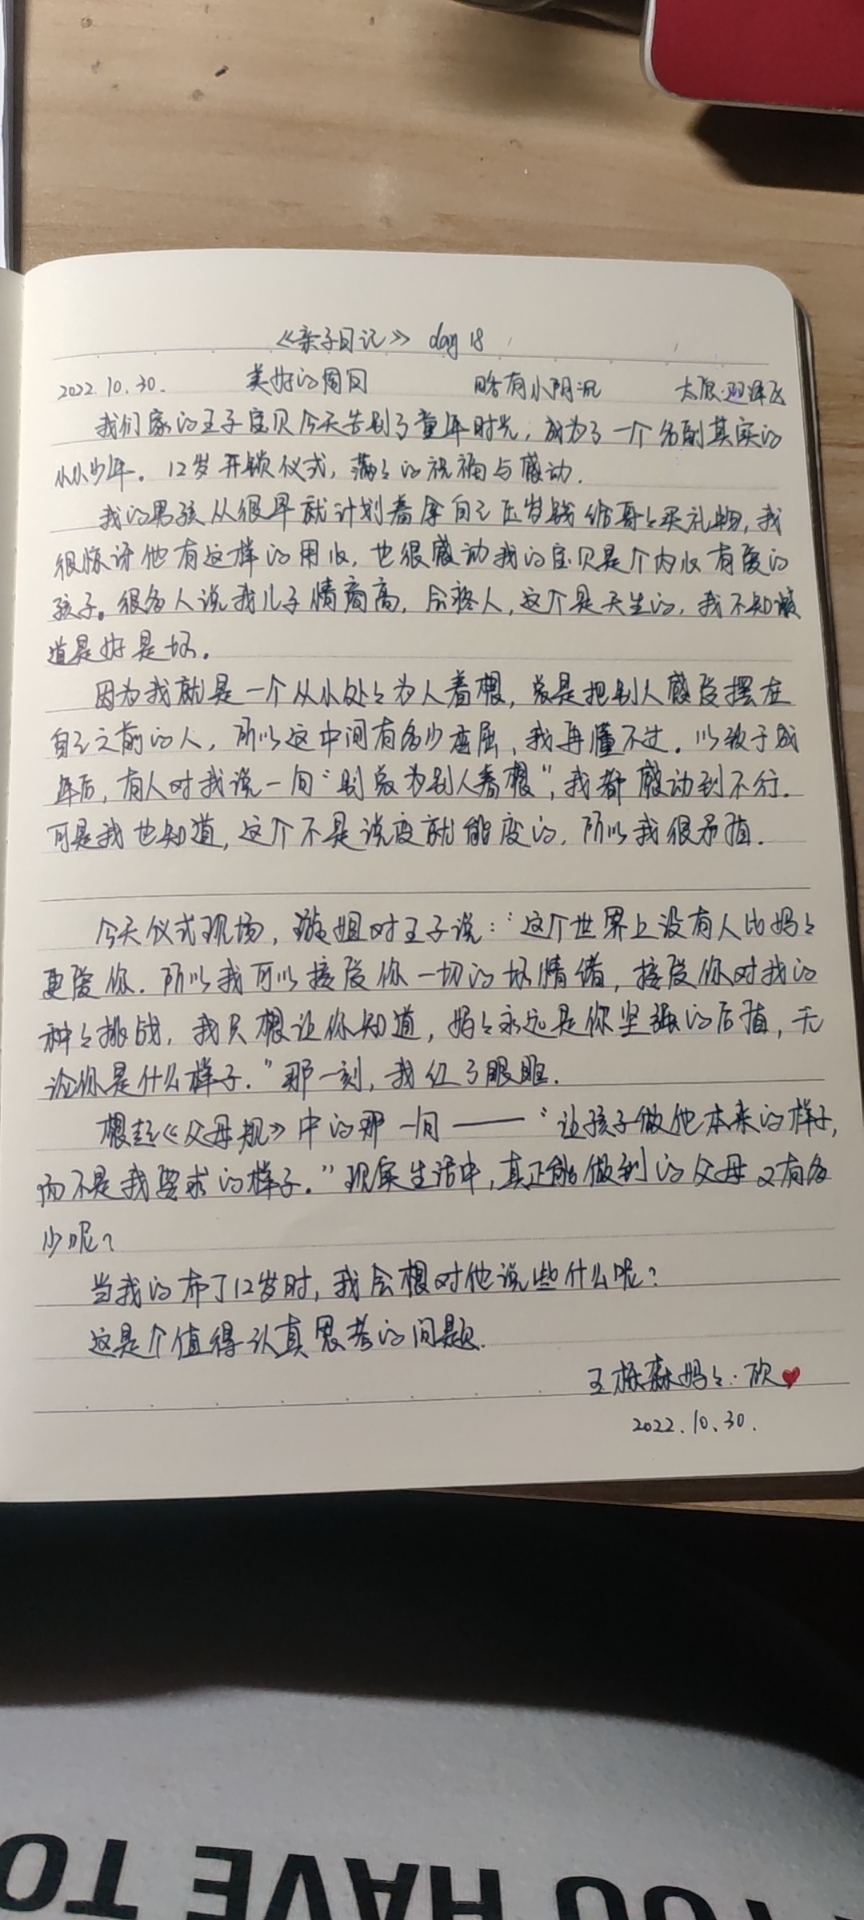 《亲子日记》 day 18
2022.10.30. 美好的周日 略有小阴沉 太原·
我们家的王子宝贝今天告别了童年时光，成为了一个名副其实的
小小少年。12岁开锁仪式，满满的祝福与感动.
我的男孩从很早就计划着拿自己压岁钱给哥哥买礼物，我
很惊讶他有这样的用心，也很感动我的宝贝是个内心有爱的
孩子。很多人说我儿子情商高，会疼人，这个是天生的，我不知该
道是好是坏。
因为我就是一个从小处处为人着想，总是把别人感受摆在
自己之前的人，所以这中间有多少委屈，我再懂不过. 以致于成
年后，有人对我说一句“别总为别人着想”，我都感动到不行.
可是我也知道，这个不是说变就能变的，所以我很矛盾.
今天仪式现场，璇姐对王子说：“这个世界上没有人比妈妈
更爱你. 所以我可以接受你一切的坏情绪，接受你对我的
种种挑战，我只想让你知道，妈妈永远是你坚强的后盾，无
论你是什么样子.”那一刻，我红了眼眶.
想起《父母规》中的那一句——“让孩子做他本来的样子，
而不是我要求的样子.”现实生活中，真正能做到的父母又有多
少呢？
当我的布丁12岁时，我会想对他说些什么呢？
这是个值得认真思考的问题.
王栎森妈妈：欣
2022.10.30.
YOU HAVE TO